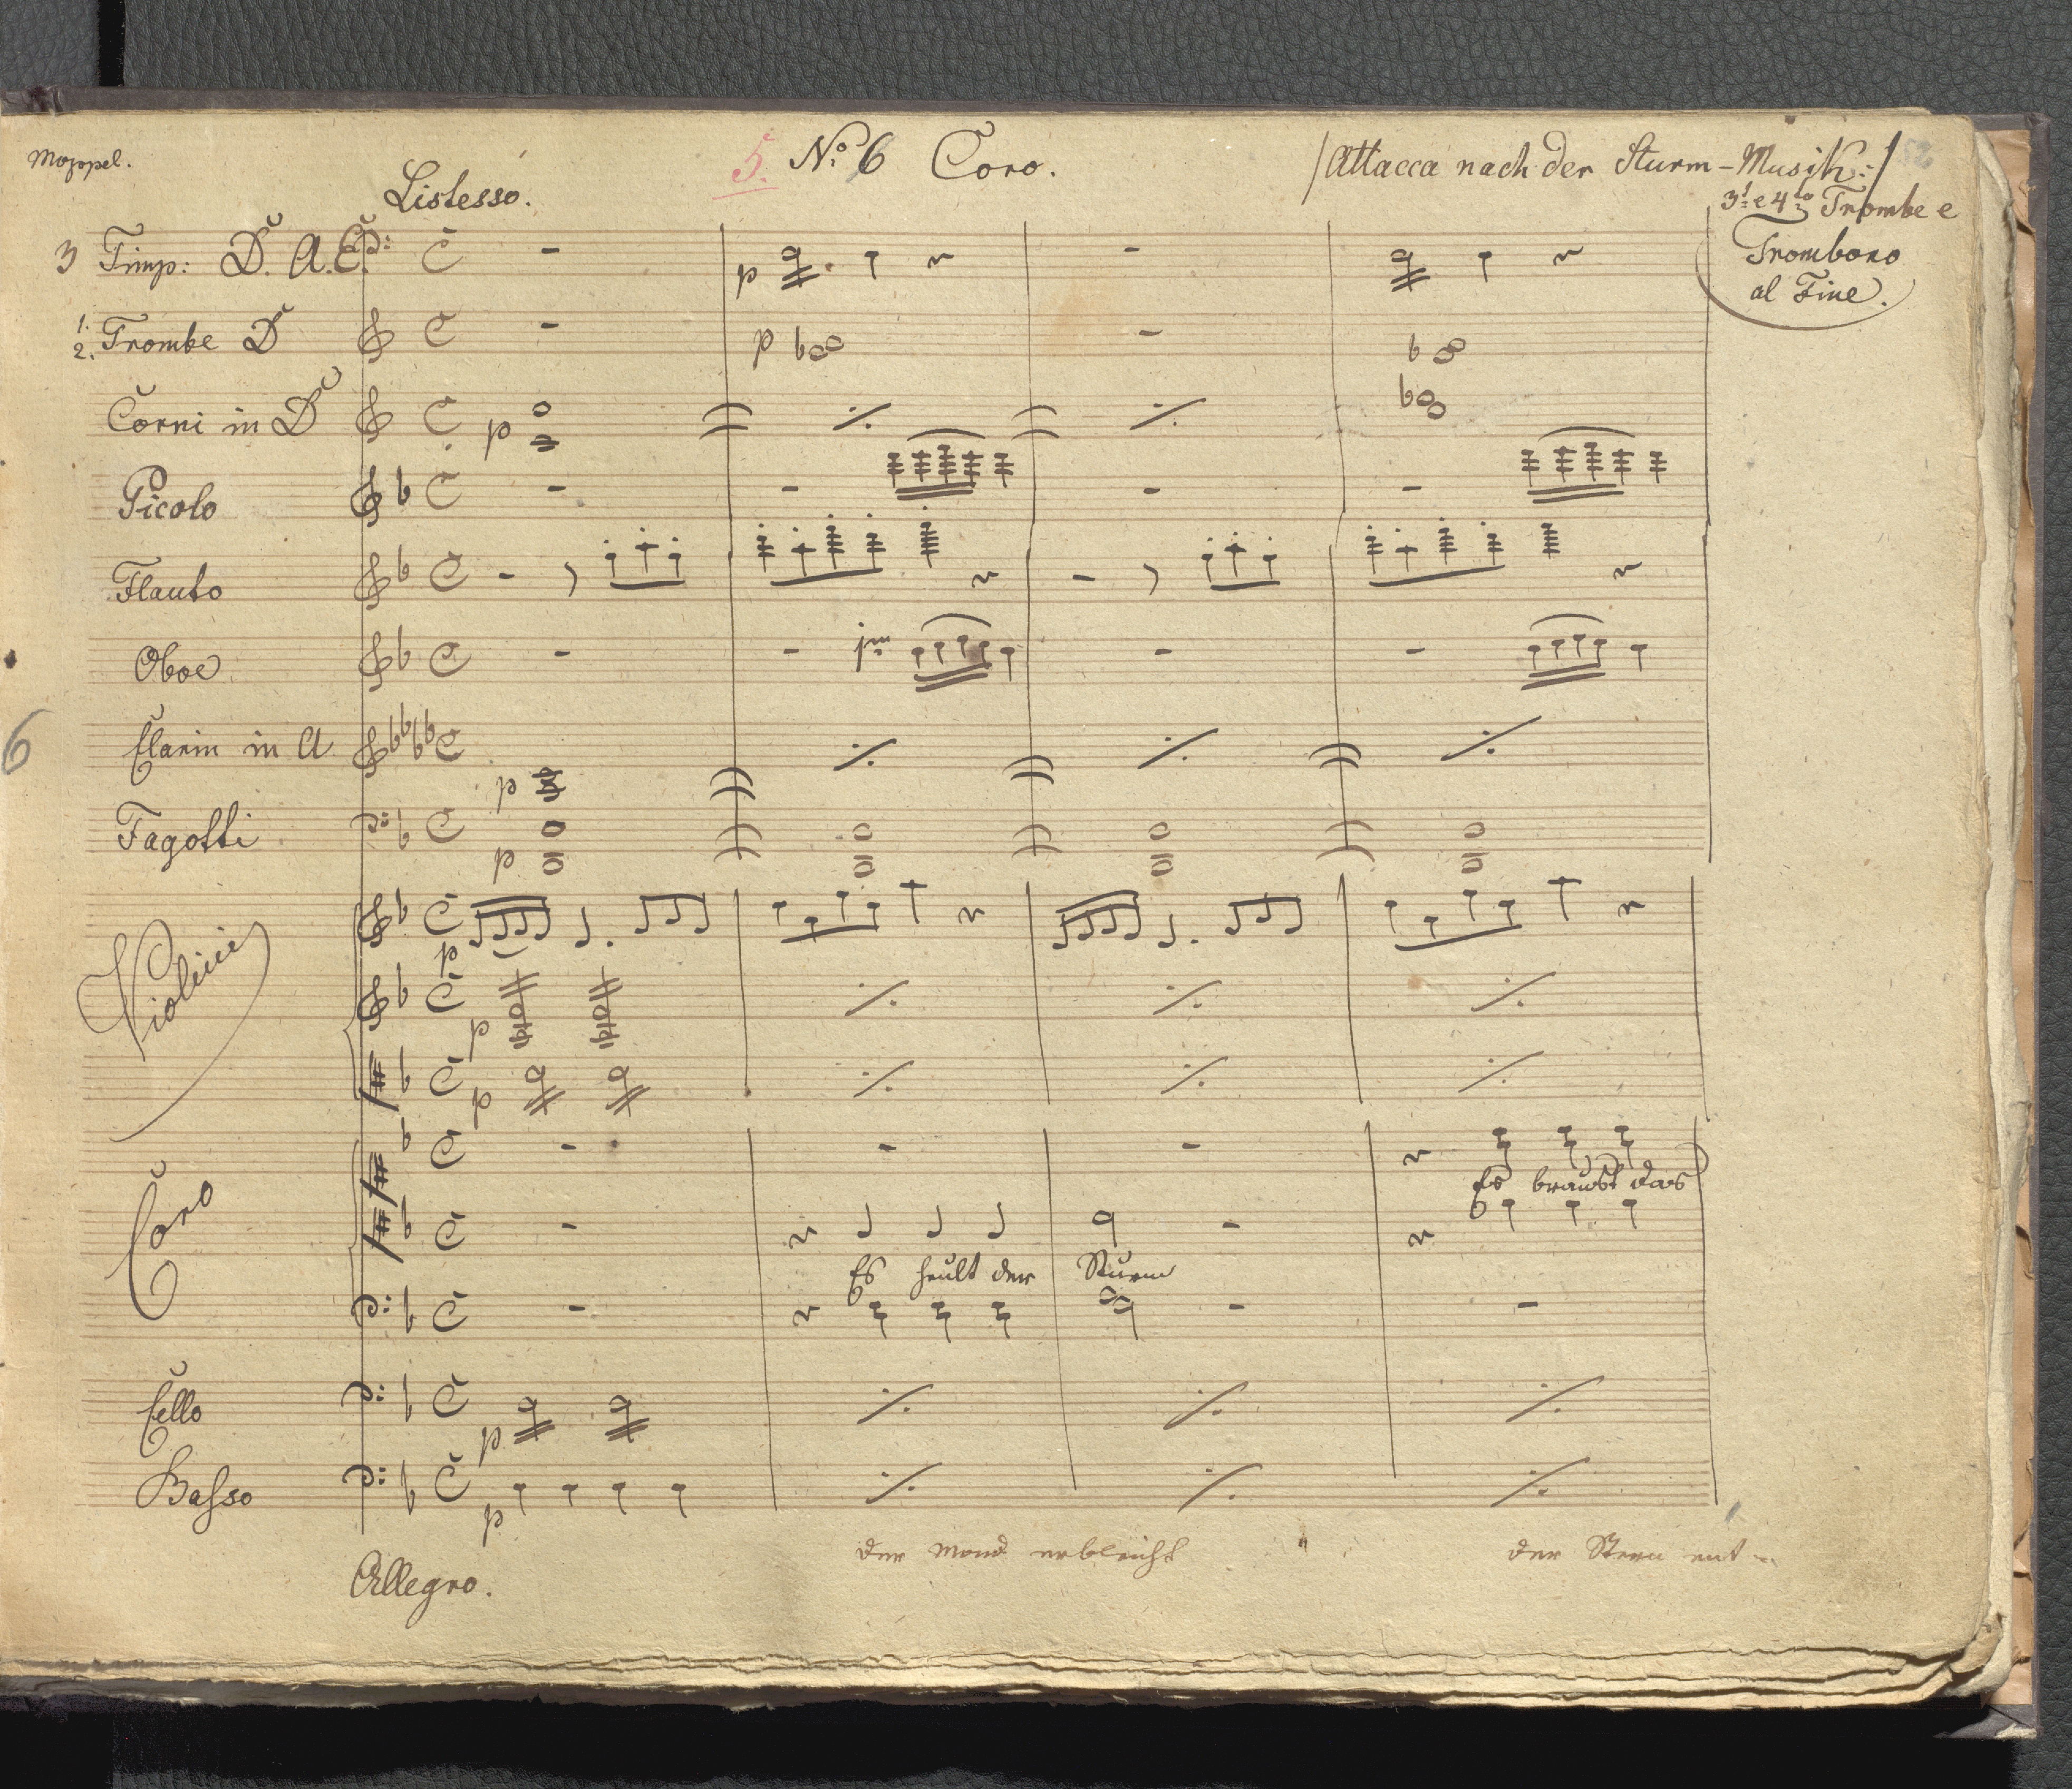 Moppel.
5. No. 6 Coro.
/Attacca nach der Sturm-Musik:/
Listesso.
3t e 4to Trombe e
Trombono
al Fine.
3 Timp: D. A. E.
1.
2. Trombe D
p
Corni in D
p
Picolo
Flauto
Oboe
jmo
6
Clarin in A
p
Fagotti
p
Violini
p
p
p
Coro
Es braust das
Es heult der Sturm
Cello
p
Basso
p
der Mond erbleicht " der Stern ent-
Allegro.